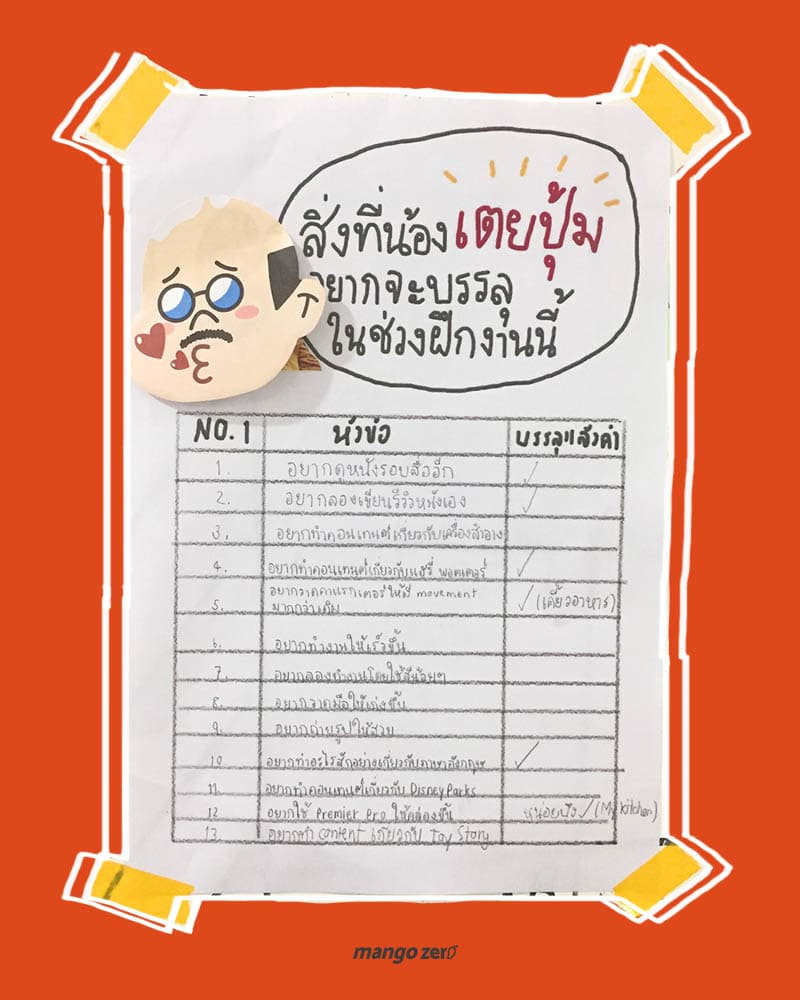 สิ่งที่น้องเตยปุ้ม
อยากจะบรรลุ
ในช่วงฝึกงานนี้
NO. 1 หัวข้อ บรรลุแล้วค่ำ
1. อยากดูหนังรอบสื่ออีก ✓
2. อยากลองเขียนรีวิวหนังเอง ✓
3. อยากทำคอนเทนต์เกี่ยวกับเครื่องสำอาง
4. อยากทำคอนเทนต์เกี่ยวกับแฮรี่ พอตเตอร์ ✓
5. อยากวาดคาแรกเตอร์ให้มี movement
มากกว่าเดิม ✓ (เคี้ยวอาหาร)
6. อยากทำงานให้เร็วขึ้น
7. อยากลองทำงานโดยใช้สีน้อยๆ
8. อยากวาดมือให้เก่งขึ้น
9. อยากถ่ายรูปให้สวย
10 อยากทำอะไรสักอย่างเกี่ยวกับภาษาอังกฤษ ✓
11. อยากทำคอนเทนต์เกี่ยวกับ Disney Parks
12 อยากใช้ Premier Pro ให้คล่องขึ้น หน่อยนึง ✓ (Kitchen)
13. อยากทำ content เกี่ยวกับ Toy Story
mango zero